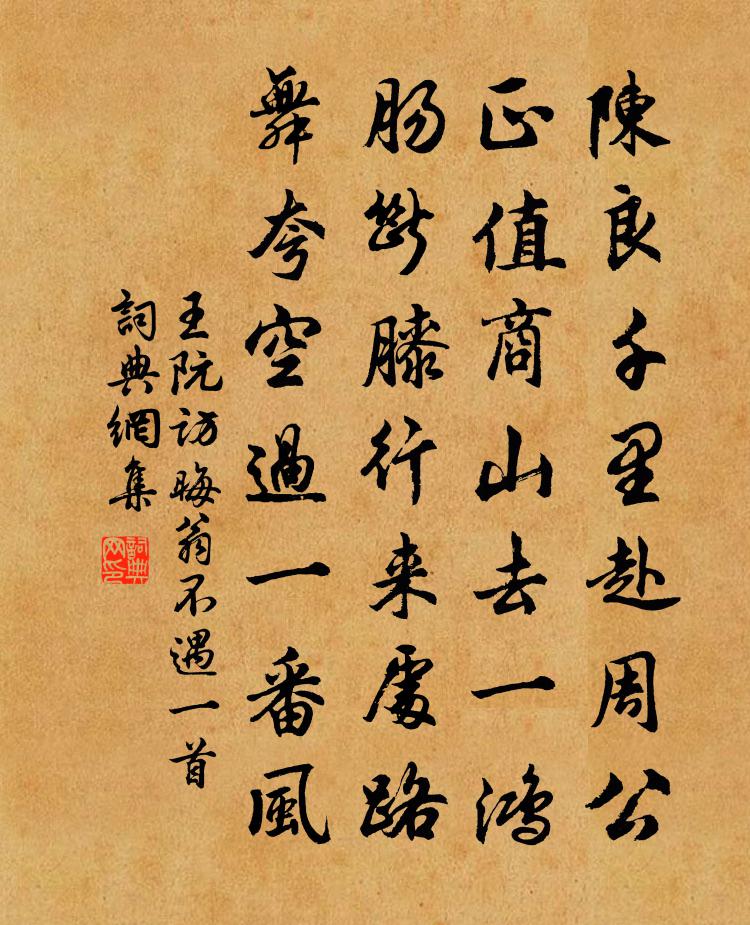 陳良千里赴周公
正值商山去一鴻
腸斷膝行来處路
舞夸空過一番風
王阮訪晦翁不遇一首
詞典網集
詞典網印